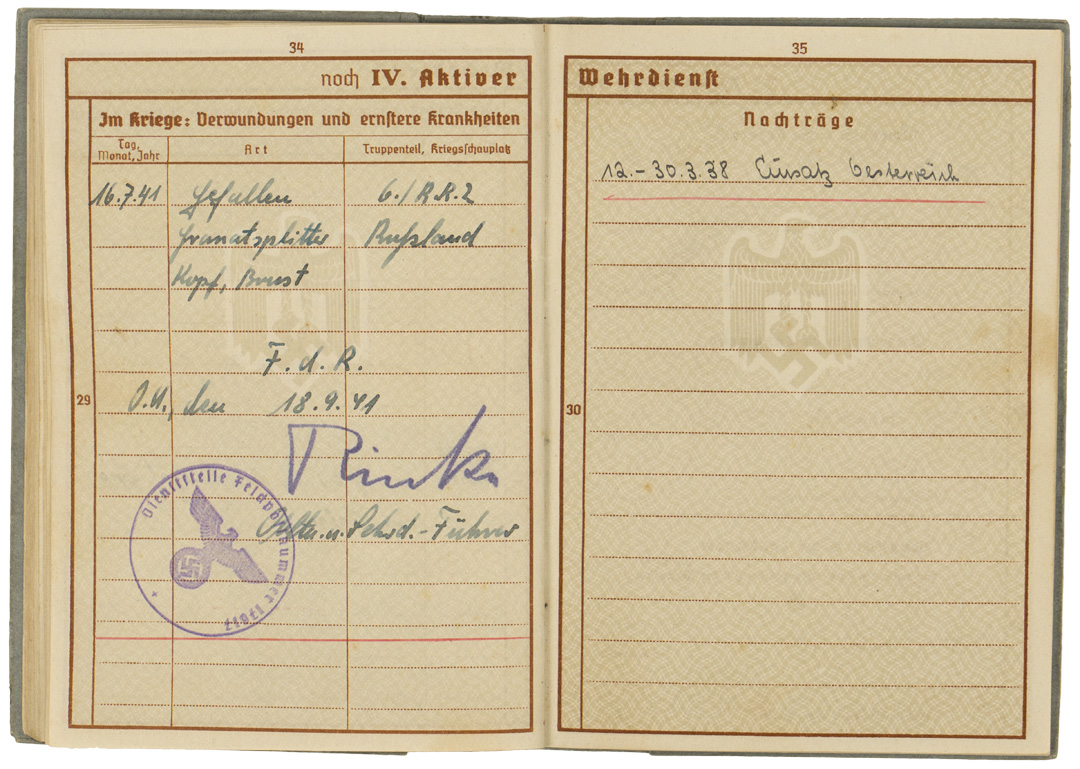 34
noch IV. Aktiver
Im Kriege: Verwundungen und ernstere Krankheiten
Tag, Monat, Jahr
Art
Truppenteil, Kriegsschauplatz
16.7.41 Gefallen 6./R.R.2
Granatsplitter Rußland
Kopf, Brust
F. d. R.
29
O.U., den 18.9.41
Obltn. u. -Führer
Dienststelle Feldpostnummer
35
Wehrdienst
Nachträge
12.-30.3.38 Einsatz Oesterreich
30